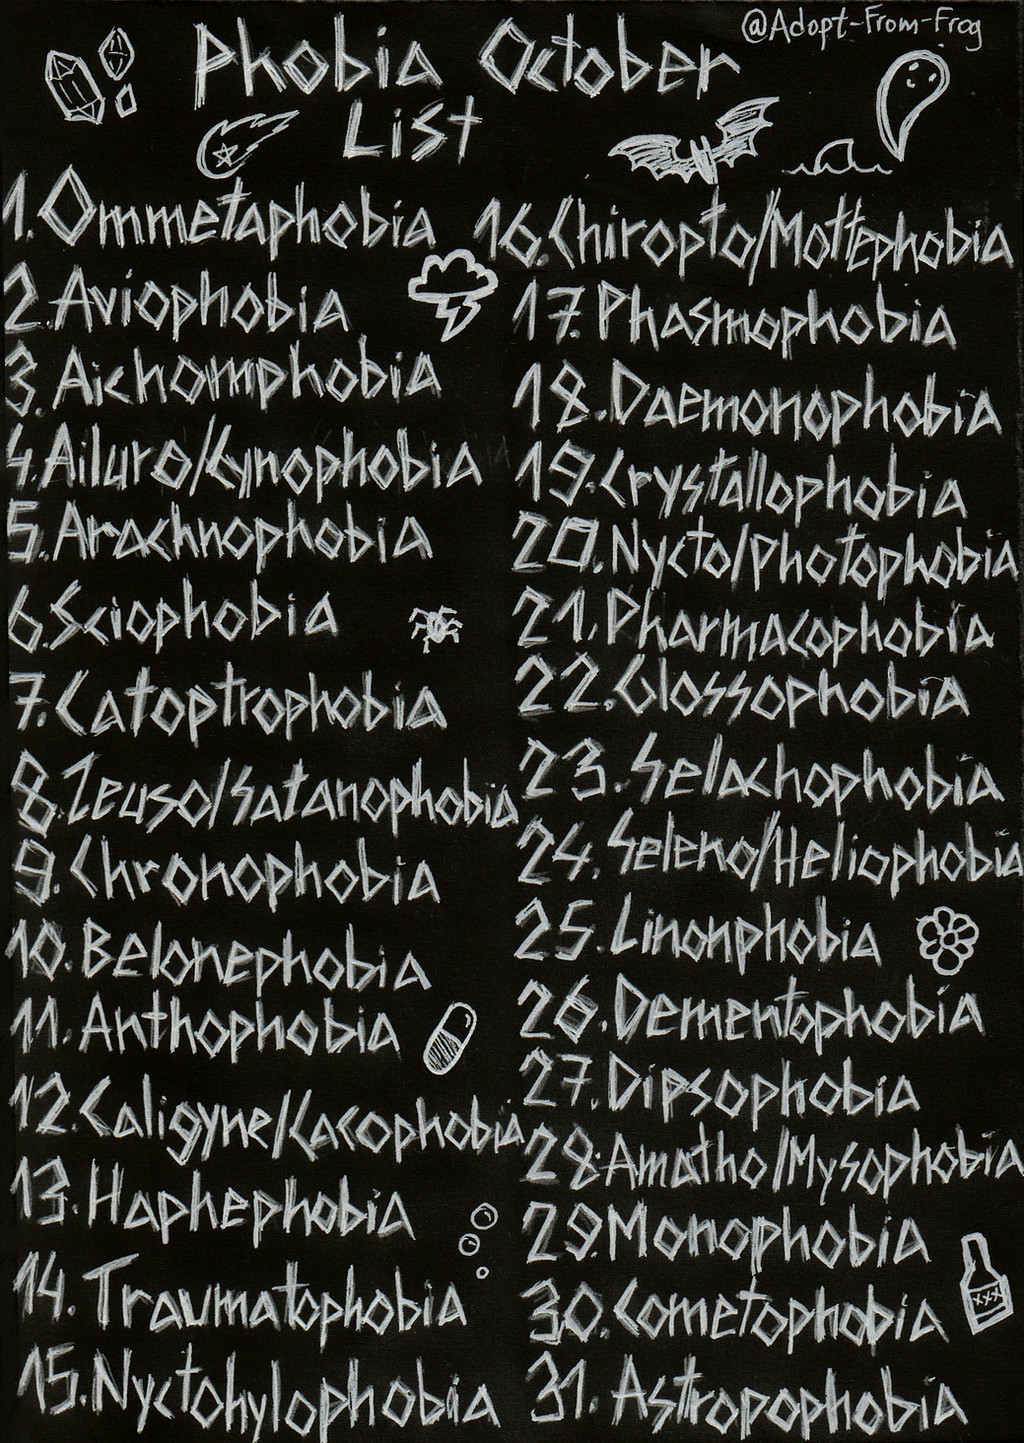 @Adopt-From-Frog
Phobia October
List
1. Ommetaphobia
2. Aviophobia
3. Aichomphobia
4. Ailuro/Cynophobia
5. Arachnophobia
6. Sciophobia
7. Catoptrophobia
8. Zeuso/Satanophobia
9. Chronophobia
10. Belonephobia
11. Anthophobia
12. Caligyne/Cacophobia
13. Haphephobia
14. Traumatophobia
15. Nyctohylophobia
16. Chiropto/Mottephobia
17. Phasmophobia
18. Daemonophobia
19. Crystallophobia
20. Nycto/Photophobia
21. Pharmacophobia
22. Glossophobia
23. Selachophobia
24. Seleno/Heliophobia
25. Linonphobia
26. Dementophobia
27. Dipsophobia
28. Amatho/Mysophobia
29. Monophobia
30. Cometophobia
xxx
31. Astropophobia